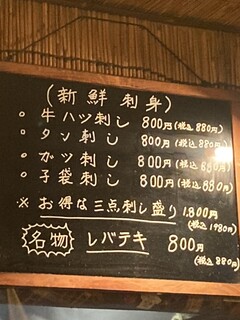 (新鮮刺身)
○ 牛ハツ刺し 800円(税込880円)
○ タン刺し 800円(税込880円)
○ ガツ刺し 800円(税込880円)
○ 子袋刺し 800円(税込880円)
※ お得な三点刺し盛り 1,800円
(税込1980円)
名物 レバテキ 800円
(税込880円)